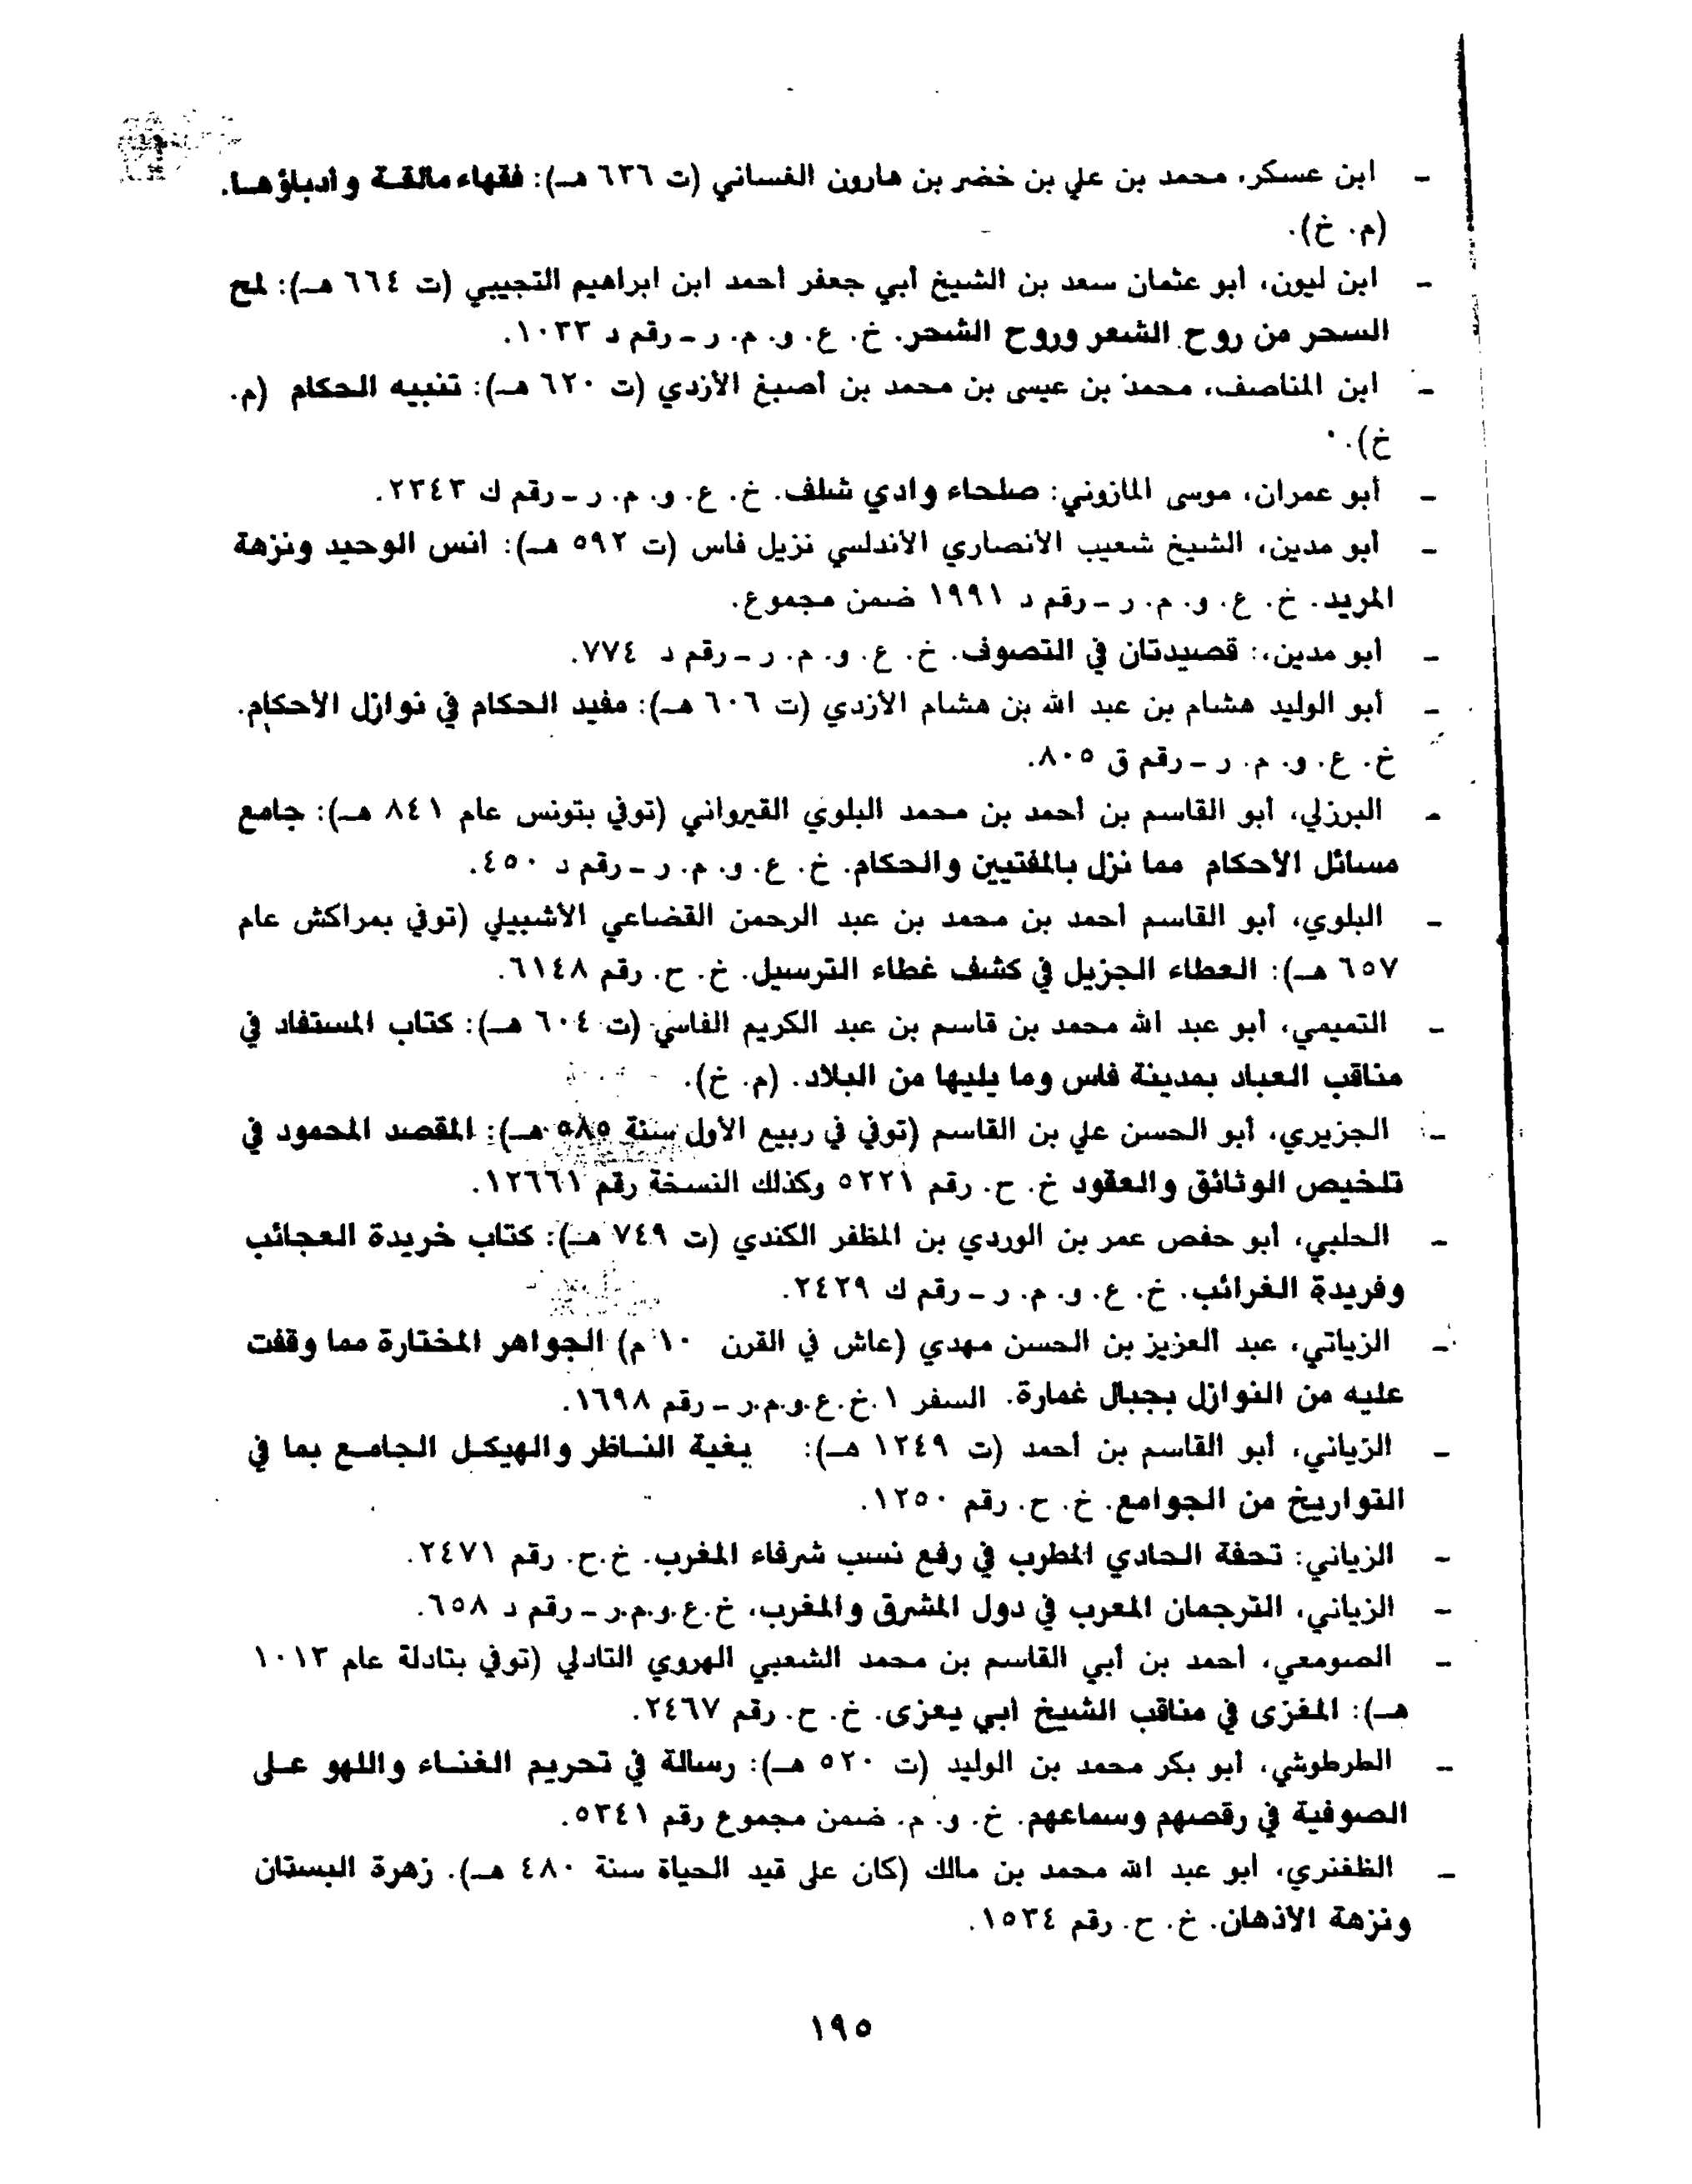 - ابن عسكر، محمد بن علي بن خضر بن هارون الغساني (ت ٦٣٦ هـ): فقهاء مالقة وأدباؤها.
(م. خ).
- ابن ليون، أبو عثمان سعد بن الشيخ أبي جعفر أحمد ابن ابراهيم التجيبي (ت ٦٦٤ هـ): لمح
السحر من روح الشعر وروح الشحر. خ. ع. و. م. ر - رقم د ١٠٣٣.
- ابن المناصف، محمد بن عيسى بن محمد بن أصبغ الأزدي (ت ٦٢٠ هـ): تنبيه الحكام (م.
خ).
- أبو عمران، موسى المازوني: صلحاء وادي شلف. خ. ع. و. م. ر - رقم ك ٢٣٤٣.
- أبو مدين، الشيخ شعيب الأنصاري الأندلسي نزيل فاس (ت ٥٩٢ هـ): انس الوحيد ونزهة
المريد. خ. ع. و. م. ر - رقم د ١٩٩١ ضمن مجموع.
- أبو مدين،: قصيدتان في التصوف. خ. ع. و. م. ر - رقم د ٧٧٤.
- أبو الوليد هشام بن عبد الله بن هشام الأزدي (ت ٦٠٦ هـ): مفيد الحكام في نوازل الأحكام.
خ. ع. و. م. ر - رقم ق ٨٠٥.
- البرزلي، أبو القاسم بن أحمد بن محمد البلوي القيرواني (توفي بتونس عام ٨٤١ هـ): جامع
مسائل الأحكام مما نزل بالمفتيين والحكام. خ. ع. و. م. ر - رقم د ٤٥٠.
- البلوي، أبو القاسم أحمد بن محمد بن عبد الرحمن القضاعي الأشبيلي (توفي بمراكش عام
٦٥٧ هـ): العطاء الجزيل في كشف غطاء الترسيل. خ. ح. رقم ٦١٤٨.
- التميمي، أبو عبد الله محمد بن قاسم بن عبد الكريم الفاسي (ت ٦٠٤ هـ): كتاب المستفاد في
مناقب العباد بمدينة فاس وما يليها من البلاد. (م. خ).
- الجزيري، أبو الحسن علي بن القاسم (توفي في ربيع الأول سنة ٥٨٥ هـ): المقصد المحمود في
تلخيص الوثائق والعقود خ. ح. رقم ٥٢٢١ وكذلك النسخة رقم ١٢٦٦١.
- الحلبي، أبو حفص عمر بن الوردي بن المظفر الكندي (ت ٧٤٩ هـ): كتاب خريدة العجائب
وفريدة الغرائب. خ. ع. و. م. ر - رقم ك ٢٤٢٩.
- الزياتي، عبد العزيز بن الحسن مهدي (عاش في القرن ١٠ م) الجواهر المختارة مما وقفت
عليه من النوازل بجبال غمارة. السفر ١.خ.ع.و.م.ر - رقم ١٦٩٨.
- الزياني، أبو القاسم بن أحمد (ت ١٢٤٩ هـ): بغية الناظر والهيكل الجامع بما في
التواريخ من الجوامع. خ. ح. رقم ١٢٥٠.
- الزياني: تحفة الحادي المطرب في رفع نسب شرفاء المغرب. خ.ح. رقم ٢٤٧١.
- الزياني، الترجمان المعرب في دول المشرق والمغرب، خ.ع.و.م.ر - رقم د ٦٥٨.
- الصومعي، أحمد بن أبي القاسم بن محمد الشعبي الهروي التادلي (توفي بتادلة عام ١٠١٣
هـ): المغزى في مناقب الشيخ أبي يعزى. خ. ح. رقم ٢٤٦٧.
- الطرطوشي، أبو بكر محمد بن الوليد (ت ٥٢٠ هـ): رسالة في تحريم الغناء واللهو على
الصوفية في رقصهم وسماعهم. خ. و. م. ضمن مجموع رقم ٥٣٤١.
- الظفنري، أبو عبد الله محمد بن مالك (كان على قيد الحياة سنة ٤٨٠ هـ). زهرة البستان
ونزهة الأذهان. خ. ح. رقم ١٥٣٤.
١٩٥